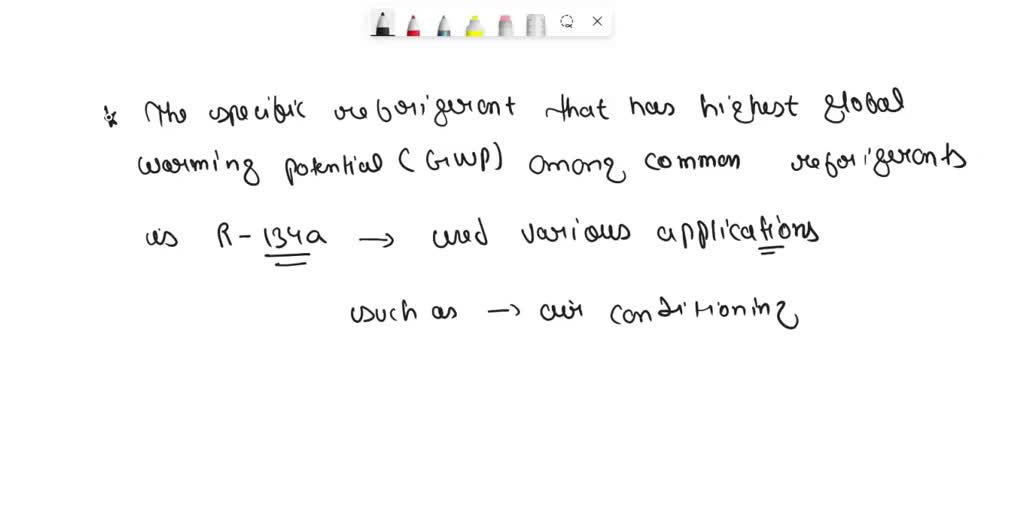 * The specific refrigerant that has highest global
warming potential (GWP) among common refrigerants
is R-134a → used various applications
such as → air conditioning